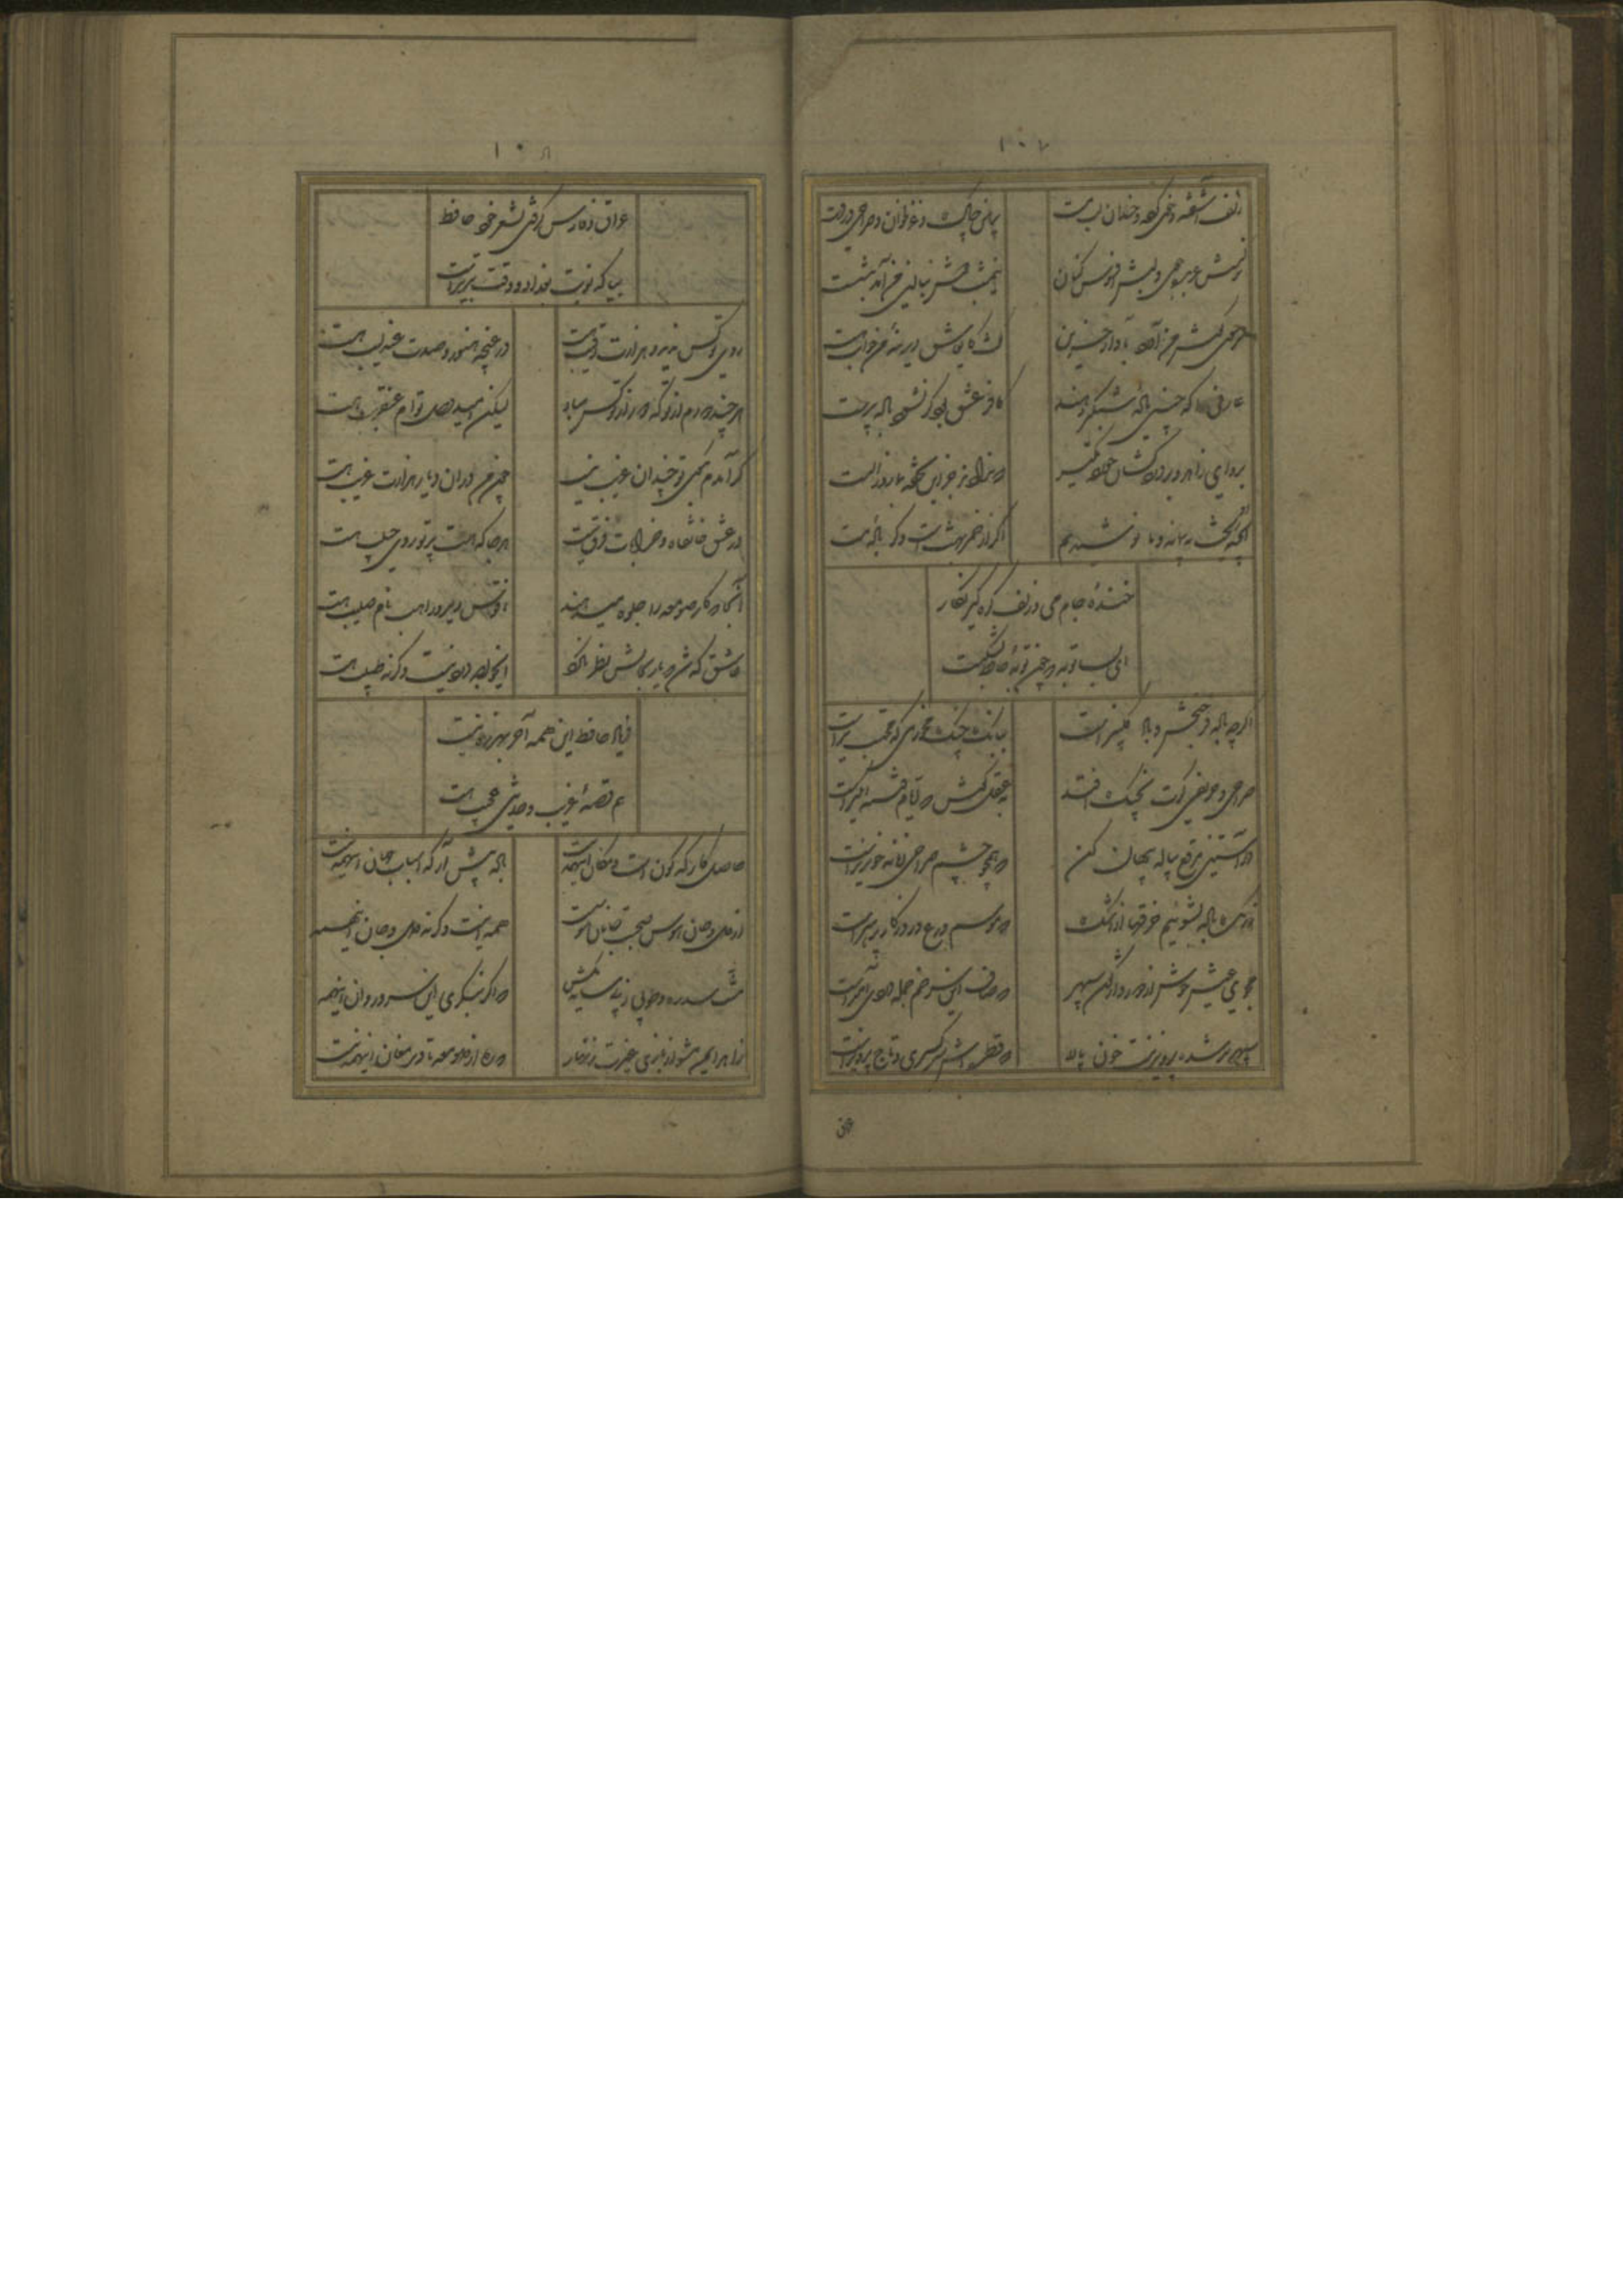 ۱۰۷
زلف آشفته و خوی کرده و خندان لب مست
پیرهن چاک و غزلخوان و صراحی در دست
نرگسش عربده جوی و لبش افسوس کنان
نیمشب مست ببالین من آمد بنشست
سر فرا گوش من آورد بآواز حزین
گفت کای عاشق دیرینهٔ من خوابت هست
عارفی را که چنین باده شبگیر دهند
کافر عشق بود گر نشود باده پرست
برو ای زاهد و بر دردکشان خرده مگیر
که ندادند جز این تحفه بما روز الست
آنچه او ریخت به پیمانهٔ ما نوشیدیم
اگر از خمر بهشت است و گر باده مست
خندهٔ جام می و زلف گره گیر نگار
ای بسا توبه که چون توبهٔ حافظ بشکست
اگرچه باده فرح بخش و باد گلبیز است
ببانک چنک مخور می که محتسب تیز است
صراحی و حریفی گرت بچنک افتد
بعقل نوش که ایام فتنه انگیز است
در آستین مرقع پیاله پنهان کن
که همچو چشم صراحی زمانه خونریز است
زرنک باده بشوئیم خرقها از اشک
که موسم ورع و روزگار پرهیز است
مجوی عیش خوش از دور واژگون سپهر
که صاف این سر خم جمله دردی آمیز است
سپهر بر شده پرویزنیست خون پالا
که قطره اش سر کسری و تاج پرویز است
عراق
۱۰۸
عراق و فارس گرفتی بشعر خود حافظ
بیا که نوبت بغداد و وقت تبریز است
روی تو کس ندید و هزارت رقیب هست
در غنچه هنوز و صدت عندلیب هست
هرچند دورم از تو که دور از تو کس مباد
لیکن امید وصل توام عنقریب هست
گر آمدم بکوی تو چندان غریب نیست
چون من در آن دیار هزارت غریب هست
در عشق خانقاه و خرابات فرق نیست
هر جا که هست پرتو روی حبیب هست
آنجا که کار صومعه را جلوه میدهند
ناقوس دیر و راهب و نام صلیب هست
عاشق که شد که یار بحالش نظر نکرد
ای خواجه درد نیست و گرنه طبیب هست
فریاد حافظ این همه آخر بهرزه نیست
هم قصهٔ غریب و حدیثی عجیب هست
حاصل کارگه کون و مکان اینهمه نیست
باده پیش آر که اسباب جهان اینهمه نیست
از دل و جان شرف صحبت جانان غرض است
همه اینست و گرنه دل و جان اینهمه
منت سدره و طوبی ز پی سایه مکش
که اگر بنگری ای سرو روان اینهمه
زاهد ایمن مشو از بازی غیرت زنهار
که ره از صومعه تا دیر مغان اینهمه نیست